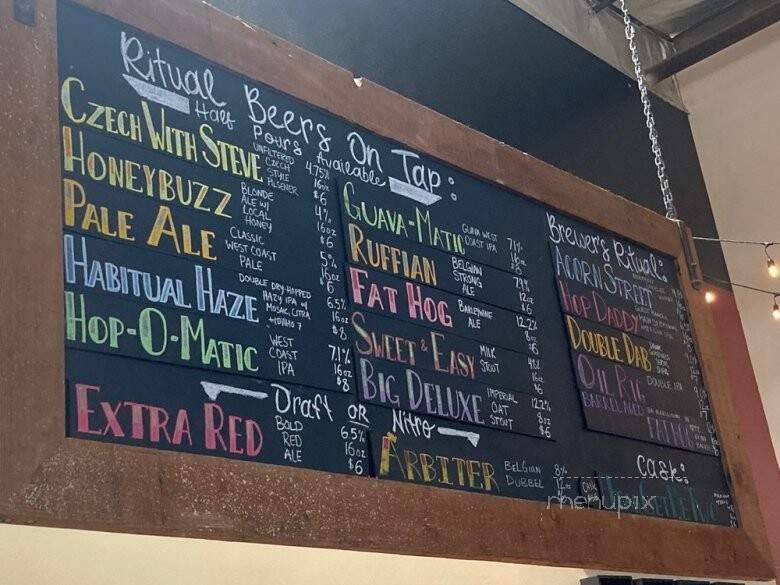 Ritual Beers On Tap:
Half Pours Available
CZECH WITH STEVE
UNFILTERED
CZECH
STYLE
PILSENER
4.75%
16oz
$6
HONEYBUZZ
BLONDE
ALE W/
LOCAL
HONEY
4%
16oz
$6
PALE ALE
CLASSIC
WEST COAST
PALE
5%
16oz
$6
HABITUAL HAZE
DOUBLE DRY-HOPPED
HAZY IPA W/
MOSAIC, CITRA
6.5%
16oz
$8
HOP-O-MATIC
WEST
COAST
IPA
7.1%
16oz
$8
Draft OR Nitro
EXTRA RED
BOLD
RED
ALE
6.5%
16oz
$6
GUAVA-MATIC
GUAVA WEST
COAST IPA
7.1%
16oz
RUFFIAN
BELGIAN
STRONG
ALE
7.9%
12oz
$6
FAT HOG
BARLEYWINE
ALE
12.2%
8oz
$6
SWEET & EASY
MILK
STOUT
16oz
$6
BIG DELUXE
IMPERIAL
OAT
STOUT
12.2%
8oz
$6
ARBITER
BELGIAN
DUBBEL
8%
Brewer's Ritual:
ACORN STREET
HOP DADDY
DOUBLE DAB
OIL RIG
DOUBLE IPA
BARREL AGED
FAT HOG
Cask:
menupix